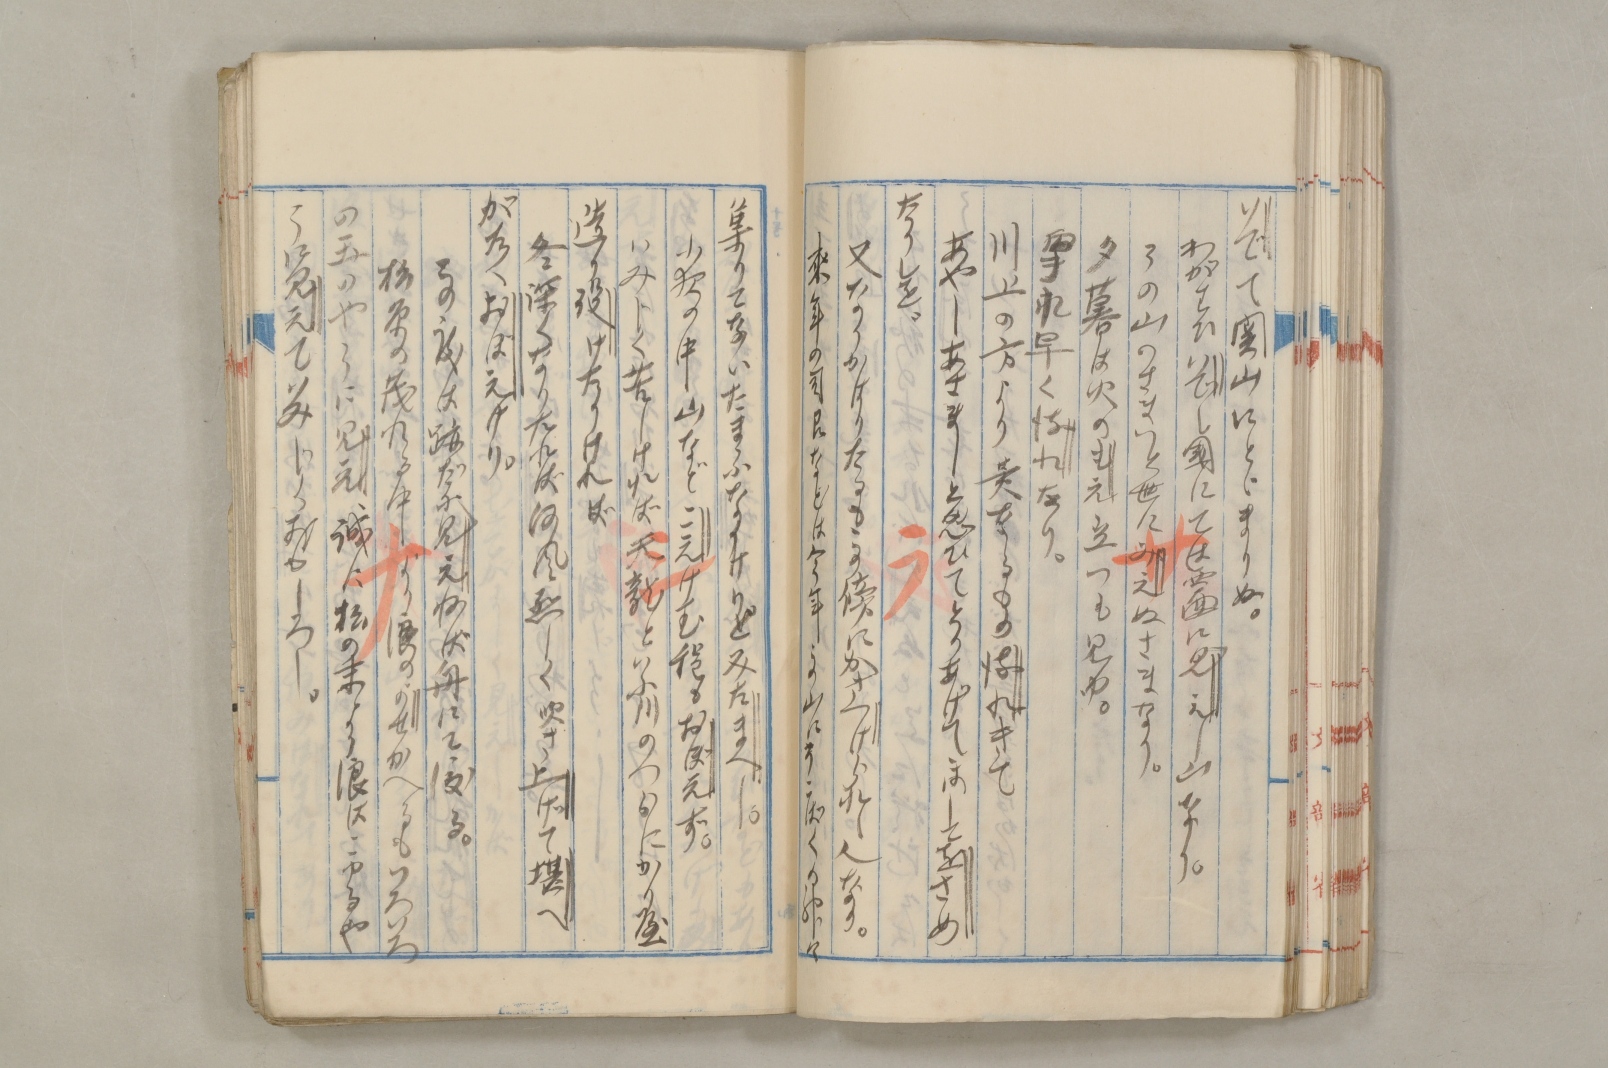 いでて関山にとどまりぬ。
わがおひいでし國にては西に見えし山なり。
その山のさまいと世に見えぬさまなり。
夕暮は火のもえ立つも見ゆ。
掌北早く流れたり。
川上の方より黄なるもの流れきて
あやしあさましと思ひてとりあげてほしをさめ
たりしを、
又なりかはりたるもこの傍にかき上げられし人なり。
來年の司召などは今年この山にそこばくの神々
集りてないたまふなりけりと見たまへし。
小夜の中山などこえけむ程もおぼえず。
いみじく苦しければ天龍といふ川のつらにかり屋
造り設けたりければ
冬深くなりたれば河風烈しく吹き上げて堪へ
がたくおぼえけり。
その渡は跡だに見えねば舟にて渡る。
松原の茂れる中より浪のよせかへるもいろいろ
の玉のやうに見え誠に松の末より浪はこゆるや
うに見えていみじくおもしろし。
ヰ
ラ
ニ
ナ